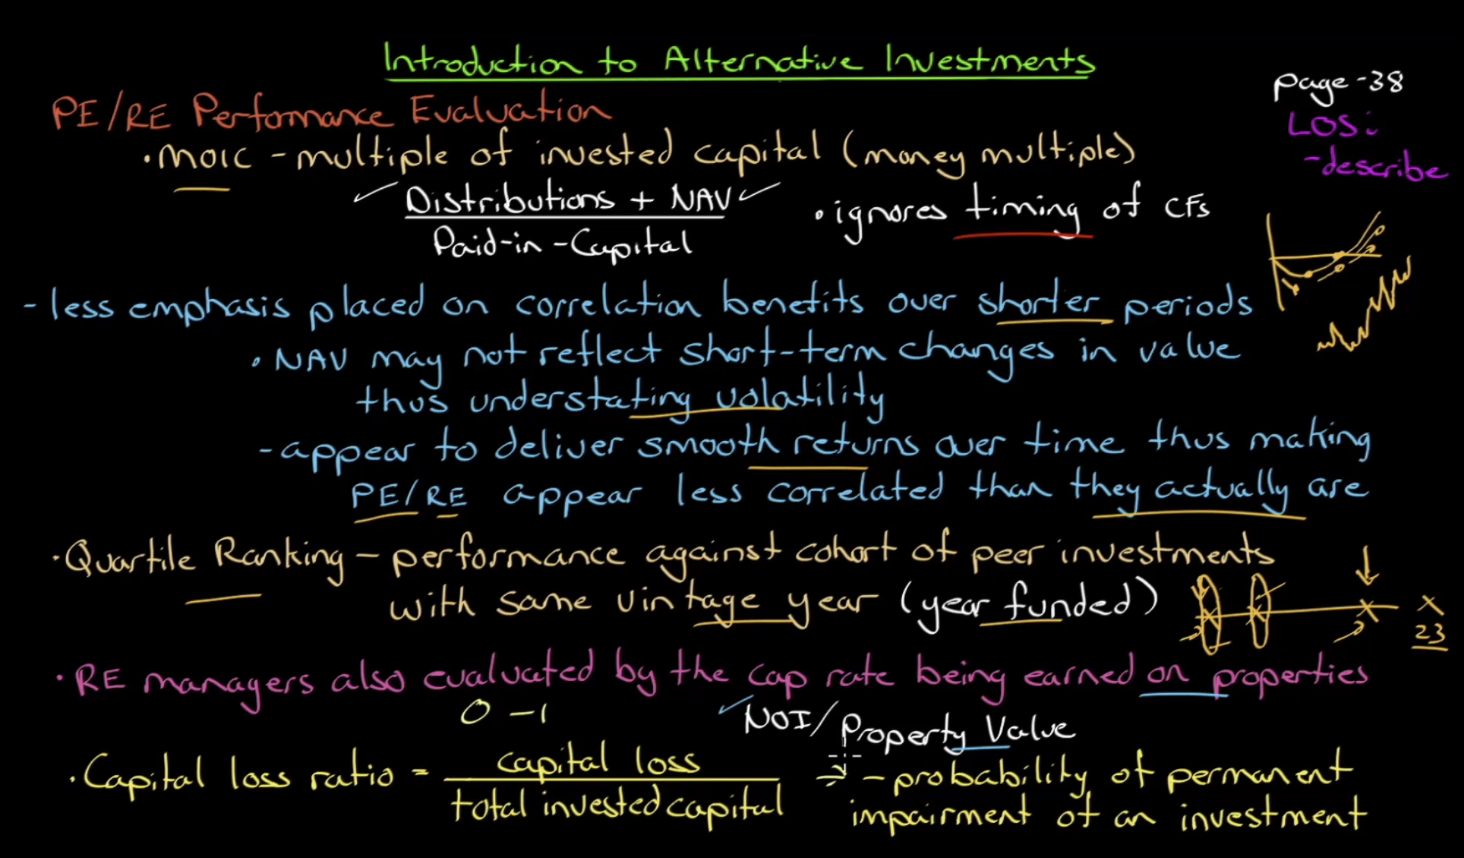 Introduction to Alternative Investments
page-38
LOS:
-describe
PE/RE Performance Evaluation
• MOIC - multiple of invested capital (money multiple)
Distributions + NAV
Paid-in-Capital
• ignores timing of CFs
- less emphasis placed on correlation benefits over shorter periods
• NAV may not reflect short-term changes in value
thus understating volatility
- appear to deliver smooth returns over time thus making
PE/RE appear less correlated than they actually are
• Quartile Ranking - performance against cohort of peer investments
with same vintage year (year funded)
X
23
• RE managers also evaluated by the cap rate being earned on properties
NOI/Property Value
0 - 1
• Capital loss ratio = capital loss
total invested capital
- probability of permanent
impairment of an investment